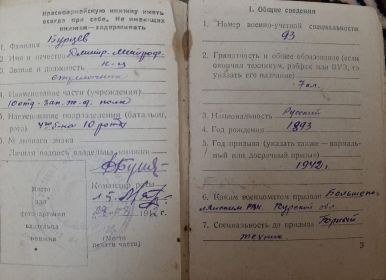 Красноармейскую книжку иметь
всегда при себе. Не имеющих
книжки — задерживать
1. Фамилия Бурцев
2. Имя и отчество Дмитр. Митроф.
3. Звание и должность к-ц
стрелочник
4. Наименование части (учреждения)
10 отд. зап. ж. д. полк
5. Наименование подразделения (батальон,
рота) 10 рота
№ личного знака
Личная подпись владельца книжки
Место
для
фото-карточки
владельца
книжки
Командир роты
(Место
печати части)
I. Общие сведения
1. Номер военно-учетной специальности
93
2. Грамотность и общее образование (если
окончил техникум, рабфак или ВУЗ, то
указать его название)
7 кл.
3. Национальность Русский
4. Год рождения 1893
5. Год призыва (указать также — нормаль-
ный или досрочный призыв)
1942 г.
6. Каким военкоматом призван Больше
РВК. Курской обл.
7. Специальность до призыва Горный
техник
3